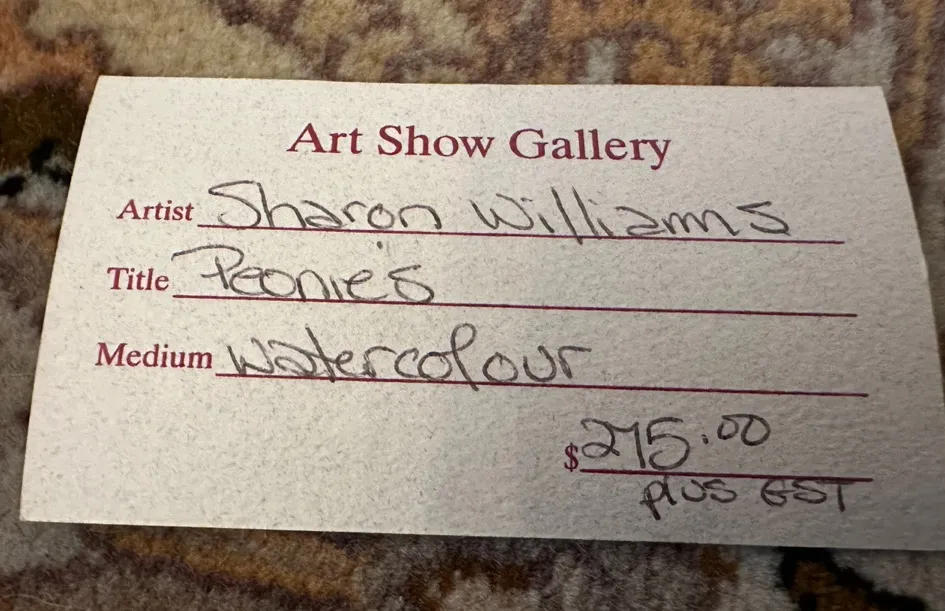 Art Show Gallery
Artist Sharon Williams
Title Peonies
Medium Watercolour
$275.00
plus GST